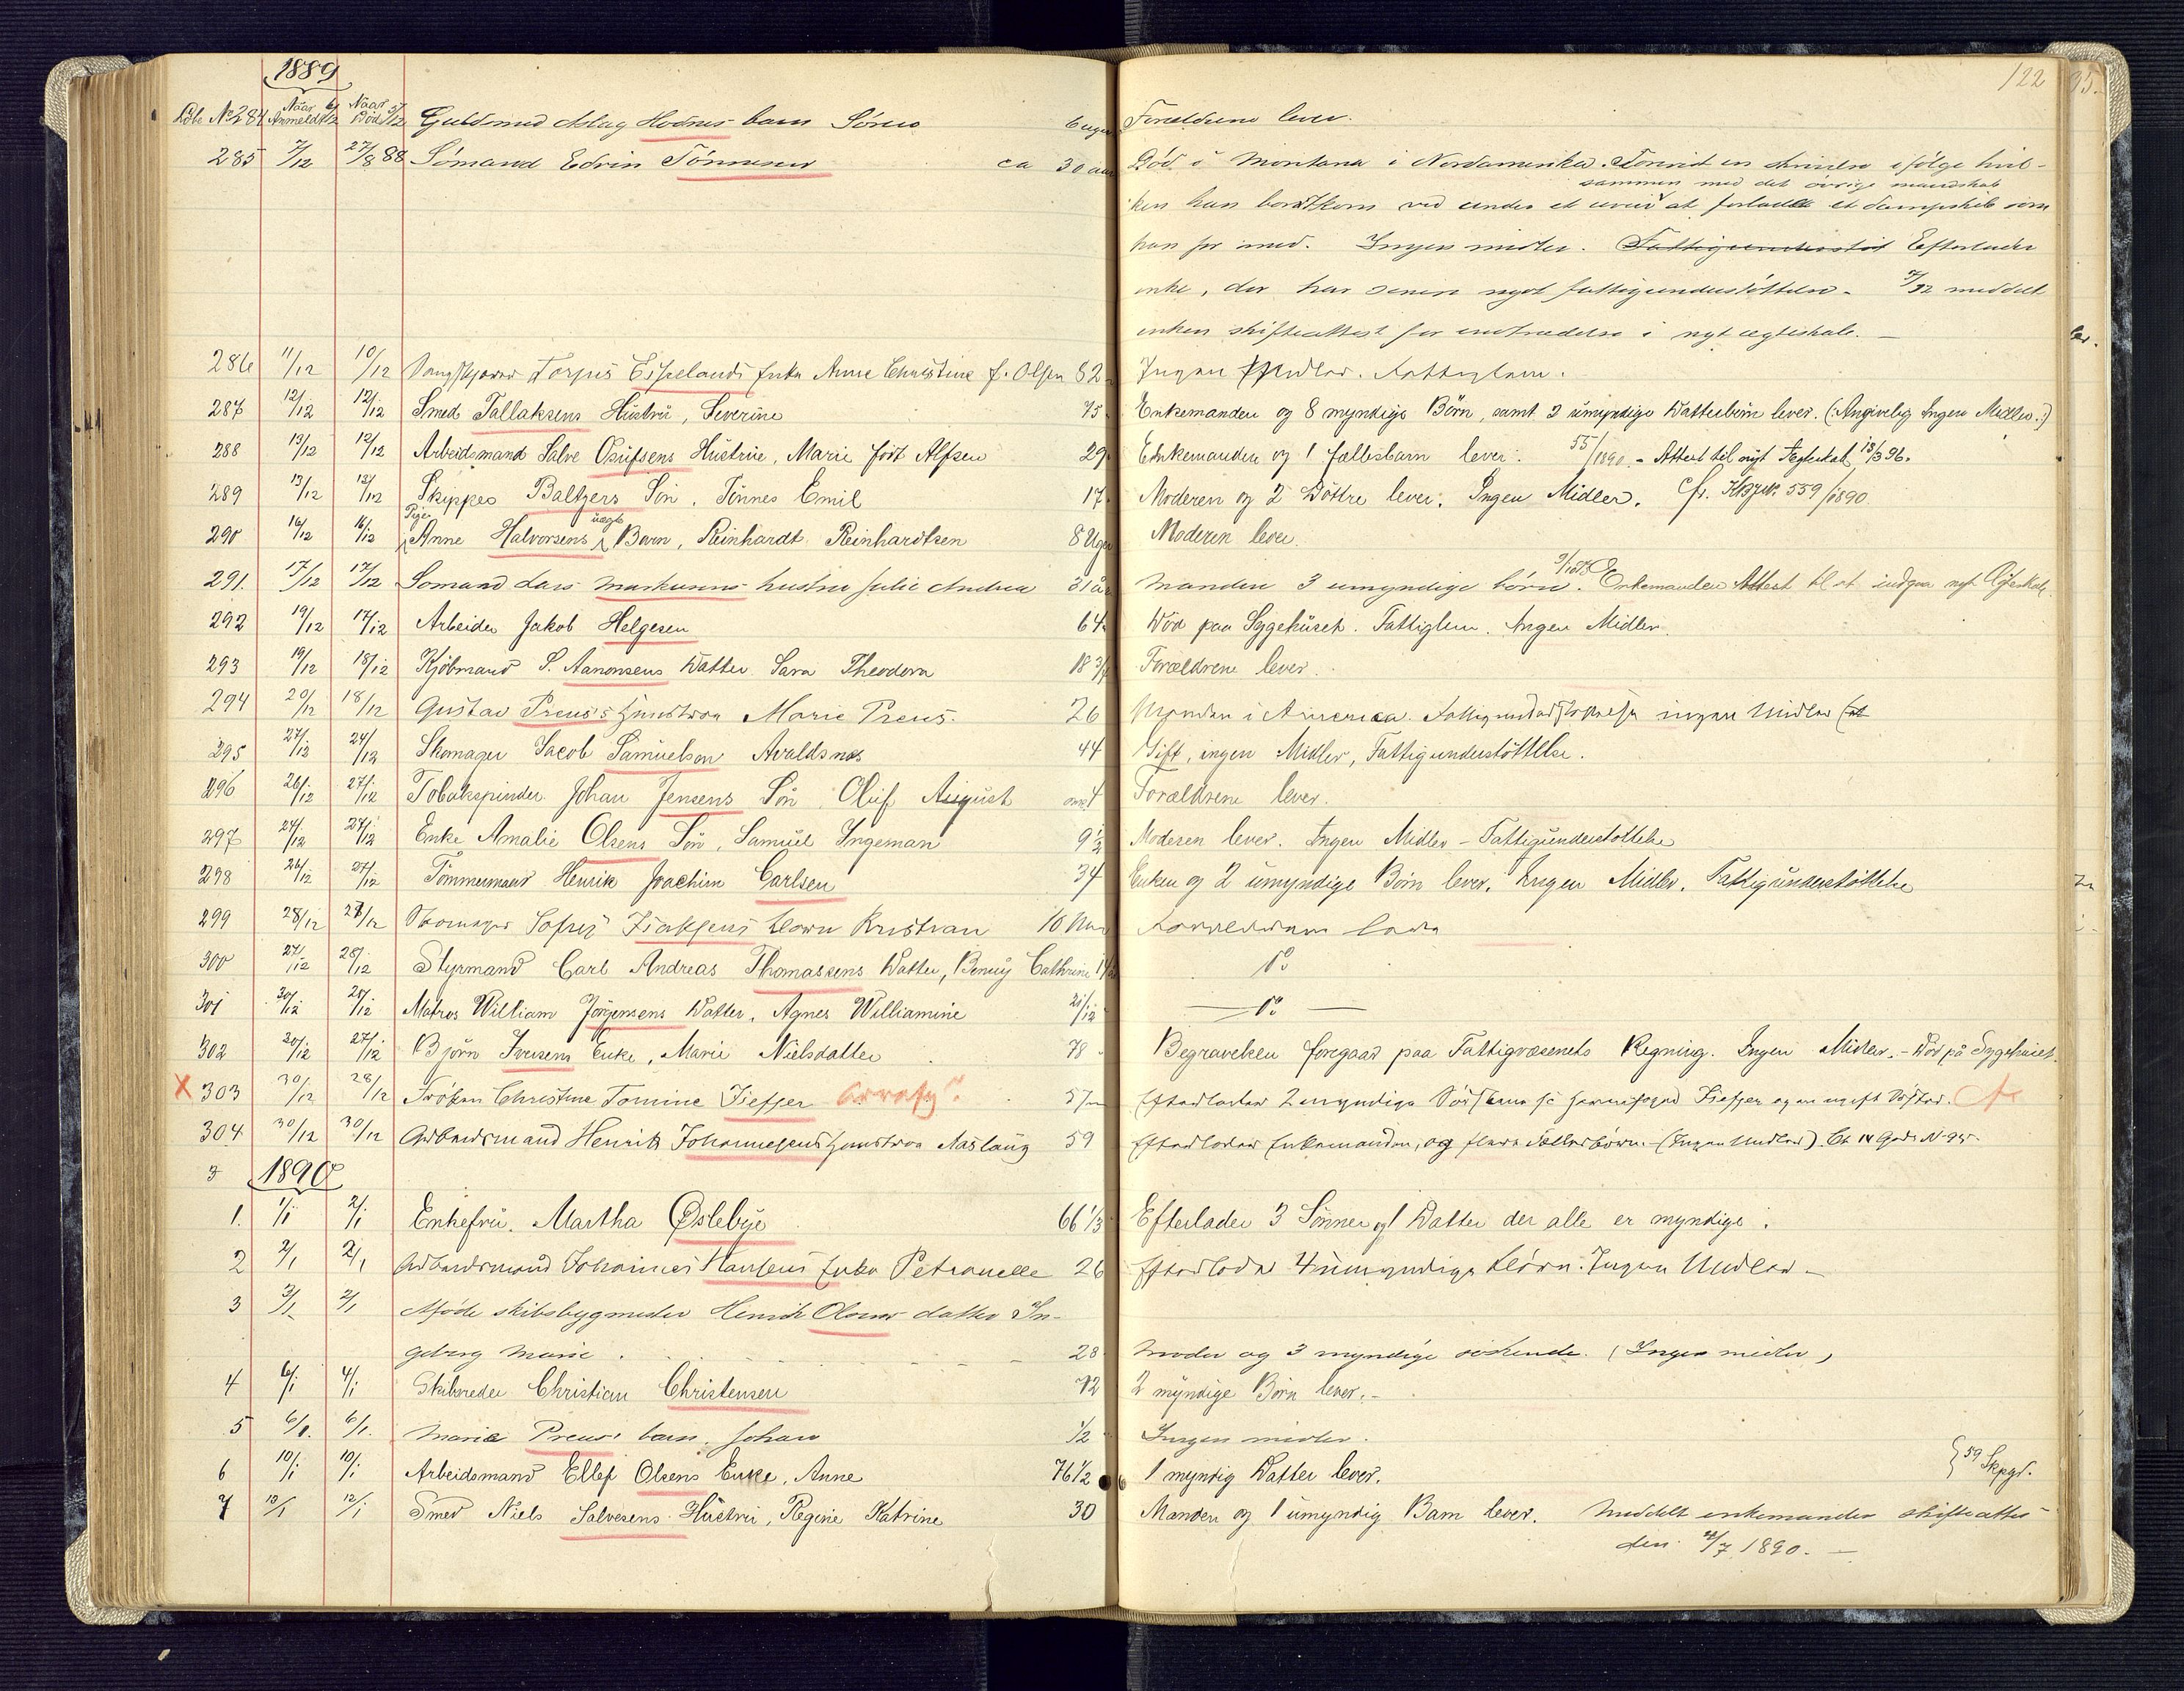 122
1889
Löbe No 284 Naar Anmeldt 6/12 Naar Död 5/12 Guldsmed Aslag Hodnes barn Sören 6 uger Forældrene lever.
285 7/12 27/8 88 Sömand Edvin Tönnesen ca 30 aar Död i Montana i Nordamerika. Forevist en skrivelse ifölge hvil-
sammen med det övrige mandskab
ken han bortkom ved under et uveir at forlade et dampskib som
han for med. Ingen midler. Fattigunderstöt Efterlader
enke, der har senere nydt fattigunderstöttelse. 7/92 meddelt
enken skifteattest for indtrædelse i nyt ægteskab. —
286 11/12 10/12 Torjus Espelands Enke Anne Christine f. Olsen 82 Ingen Midler. Fattiglem.
287 12/12 12/12 Smed Tallaksens Hustru, Severine 75 Enkemanden og 8 myndige Börn, samt 3 umyndige Datterbörn lever. (: Angivelig Ingen Midler. :)
288 13/12 12/12 Arbeidsmand Salve Osufsens Hustrue, Marie födt Alfsen 29 Enkemanden og 1 fællesbarn lever. 55/1890. - Attest til nyt Ægteskab 13/3 96.
289 13/12 12/12 Skipper Baltzers Sön, Tönnes Emil 17. Moderen og 2 Döttre lever. Ingen Midler. Cfr. 559/1890
290 16/12 16/12 Pige Anne Halvorsens uægte Barn, Reinhardt Reinhardtsen 8 Uger Moderen lever.
291. 17/12 17/12 Sömand Lars Markussens hustru Julie Andrea 31 aar Manden 3 umyndige börn. Enkemanden Attest til at indgaa nyt Ægteskab.
292 19/12 17/12 Arbeider Jakob Helgesen 64 Död paa Sygehuset. Fattiglem. Ingen Midler.
293 19/12 18/12 Kjöbmand S. Aanonsens Datter Sara Theodora 18 3/4 Forældrene lever.
294 20/12 18/12 Gustav Preus's Hustru Marie Preus. 26 Manden i America. Fattigunderstöttelse ingen Midler
295 27/12 24/12 Skomager Jacob Samuelson Avaldsnæs 44 Gift, ingen Midler, Fattigunderstöttelse.
296 26/12 27/12 Tobakspinder Johan Jensens Sön Oluf August 4 Forældrene lever.
297 24/12 24/12 Enke Amalie Olsens Sön, Samuel Ingeman 9 1/2 Moderen lever. Ingen Midler - Fattigunderstöttelse
298 26/12 27/12 Tömmermand Henrik Joachim Carlsen 34 Enken og 2 umyndige Börn lever. Ingen Midler. Fattigunderstöttelse
299 28/12 27/12 Skomager Isaksens Barn Kristian 10 Forældrene lever
300 27/12 28/12 Styrmand Carl Andreas Thomassens Datter, Benny Cathrine Do
301 30/12 20/12 Matros William Jörgensens Datter, Agnes Williamine 21/12 — Do —
302 20/12 27/12 Björn Iversens Enke, Marie Nielsdatter 78 Begravelsen foregaar paa Fattigvæsenets Regning. Ingen Midler. - Död på Sygehuset.
X 303 30/12 28/12 Fröken Christine Tomine Zieffer 57 Efterlader 2 myndige Zieffer og en ugift Söster.
304 30/12 30/12 Arbeidsmand Henrik Johannesens Hustru Aaslaug 59 Efterlader Enkemanden, og flere Fællesbörn. - (Ingen Midler).
1890
1. 1/1 2/1 Enkefru. Martha Öslebye 66 1/3 Efterlader 3 Sönner og 1 Datter der alle er myndige.
2 2/1 2/1 Arbeidsmand Johannes Hansens Enke Petronelle 26 Efterlader 4 umyndige Börn. Ingen Midler. -
3 3/1 2/1 Aföde skibsbygmester Henrik Olsens datter In-
geborg Marie. 28 Moder og 3 myndige söskende. (Ingen midler)
4 6/1 4/1 Skibsreder Christian Christensen 72 2 myndige Börn lever. -
5 6/1. 6/1. Marie Preus' barn, Johan 1/2 Ingen midler.
6 10/1 10/1 Arbeidsmand Ellef Olsens Enke, Anne 76 1/2 1 myndig Datter lever. } 59 Skpgr.
7 13/1 12/1 Smed Niels Salvesens Hustru, Regine Katrine 30 Manden og 1 umyndig Barn lever. Meddelt enkemanden skifteattest
den 4/7 1890. —